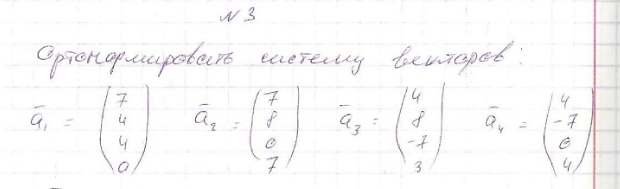 N 3
Ортонормировать систему векторов:
ā₁ = (7 4 4 0) ā₂ = (7 8 0 7) ā₃ = (4 8 -7 3) ā₄ = (4 -7 0 4)